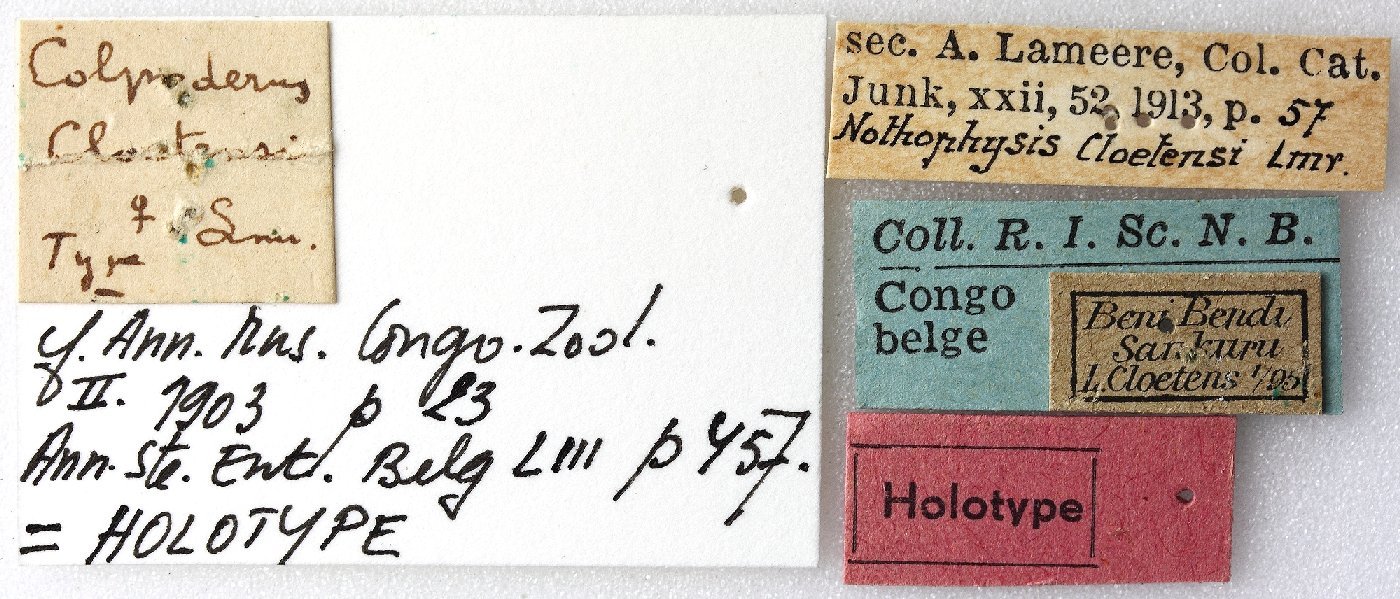 Colpoderus
Cloetensi
♀ Lmr.
Type
cf. Ann. Mus. Congo. Zool.
II. 1903 p 23
Ann. Ste. Ent. Belg LIII p 457.
= HOLOTYPE
sec. A. Lameere, Col. Cat.
Junk, xxii, 52, 1913, p. 57
Nothophysis Cloetensi Lmr.
Coll. R. I. Sc. N. B.
Congo
belge
Beni Bendi
Sankuru
L. Cloetens 1/95
Holotype